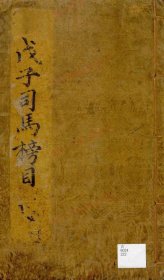 戊子司馬榜目